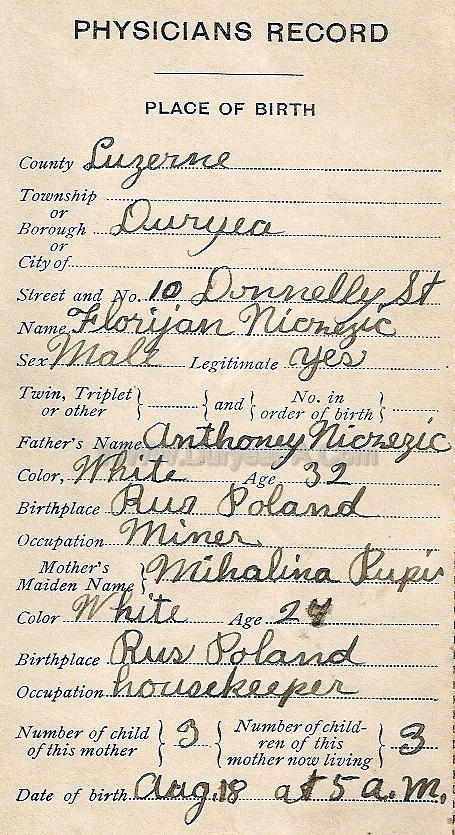 PHYSICIANS RECORD
PLACE OF BIRTH
County Luzerne
Township
or
Borough Duryea
or
City of
Street and No. 10 Donnelly St
Name Florijan Niczezic
Sex Male Legitimate yes
Twin, Triplet or other } { and } No. in order of birth }
Father's Name Anthoney Niczezic
Color, White Age 32
Birthplace Rus Poland
Occupation Miner
Mother's Maiden Name } Mihalina
Color White Age
Birthplace Rus Poland
Occupation housekeeper
Number of child of this mother } 3 { Number of child-ren of this mother now living } 3
Date of birth Aug. 18 at 5 a.m.